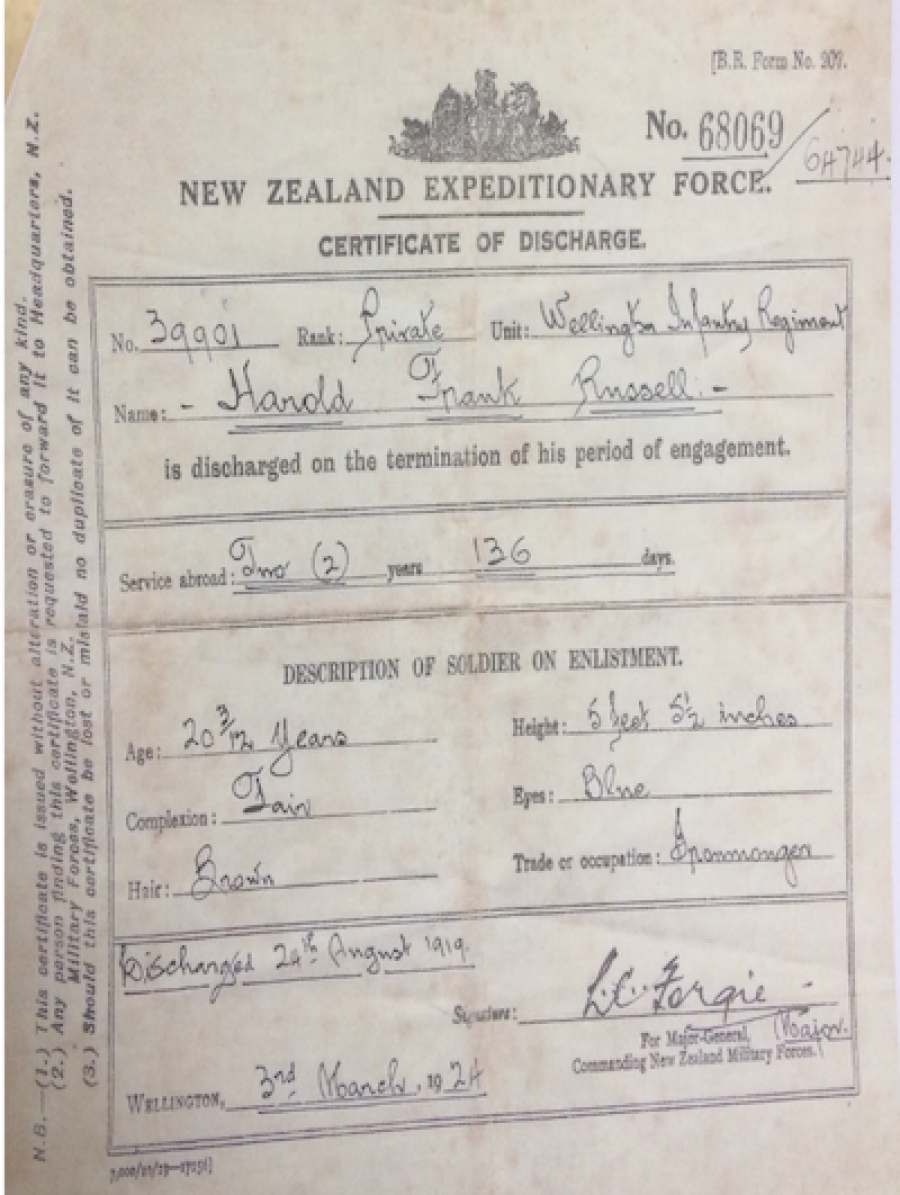 [B.R. Form No. 307.
No. 68069
64744.
NEW ZEALAND EXPEDITIONARY FORCE.
CERTIFICATE OF DISCHARGE.
No. 39901 Rank: Private Unit: Wellington Infantry Regiment
Name: - Harold Frank Russell. -
is discharged on the termination of his period of engagement.
Service abroad: Two (2) years 136 days.
DESCRIPTION OF SOLDIER ON ENLISTMENT.
Age: 20 3/12 Years
Height: 5 feet 5½ inches
Complexion: Fair
Eyes: Blue
Hair: Brown
Trade or occupation: Ironmonger
Discharged 24th August 1919.
Signature: L.C. Forgie
For Major-General, Major.
Commanding New Zealand Military Forces.
WELLINGTON, 3rd March, 1924
N.B.—(1.) This certificate is issued without alteration or erasure of any kind.
(2.) Any person finding this certificate is requested to forward it to Headquarters, N.Z.
Military Forces, Wellington, N.Z.
(3.) Should this certificate be lost or mislaid no duplicate of it can be obtained.